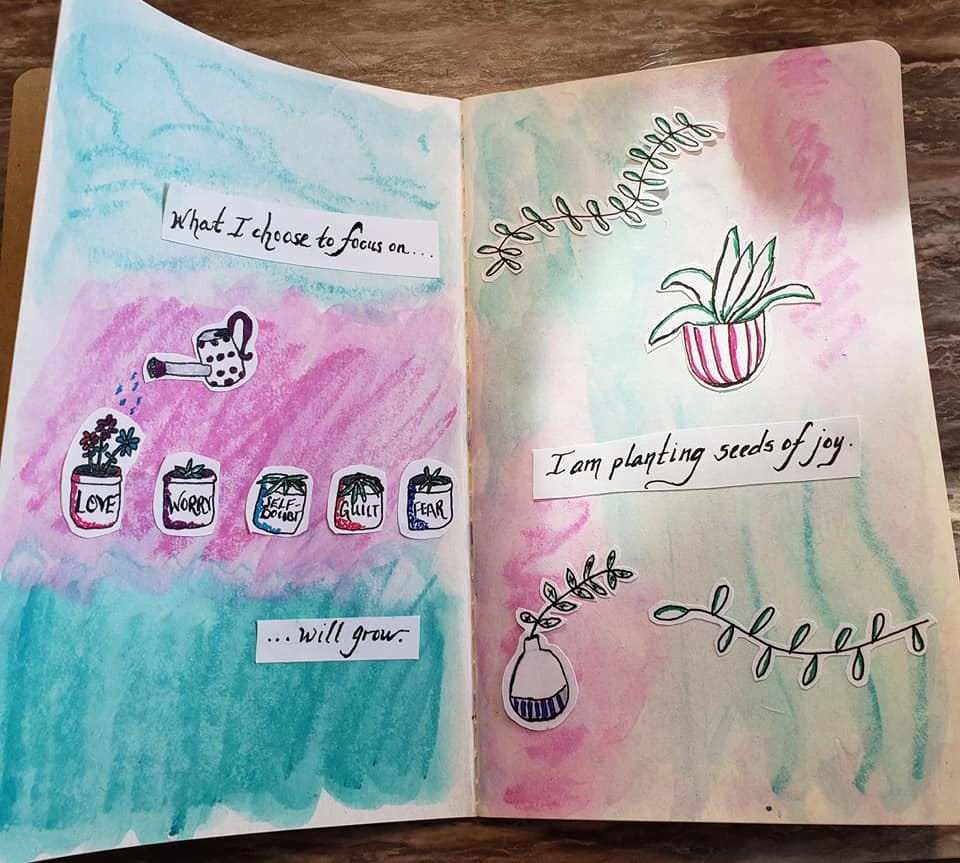 What I choose to focus on....
LOVE
WORRY
SELF-
DOUBT
GUILT
FEAR
...will grow.
I am planting seeds of joy.